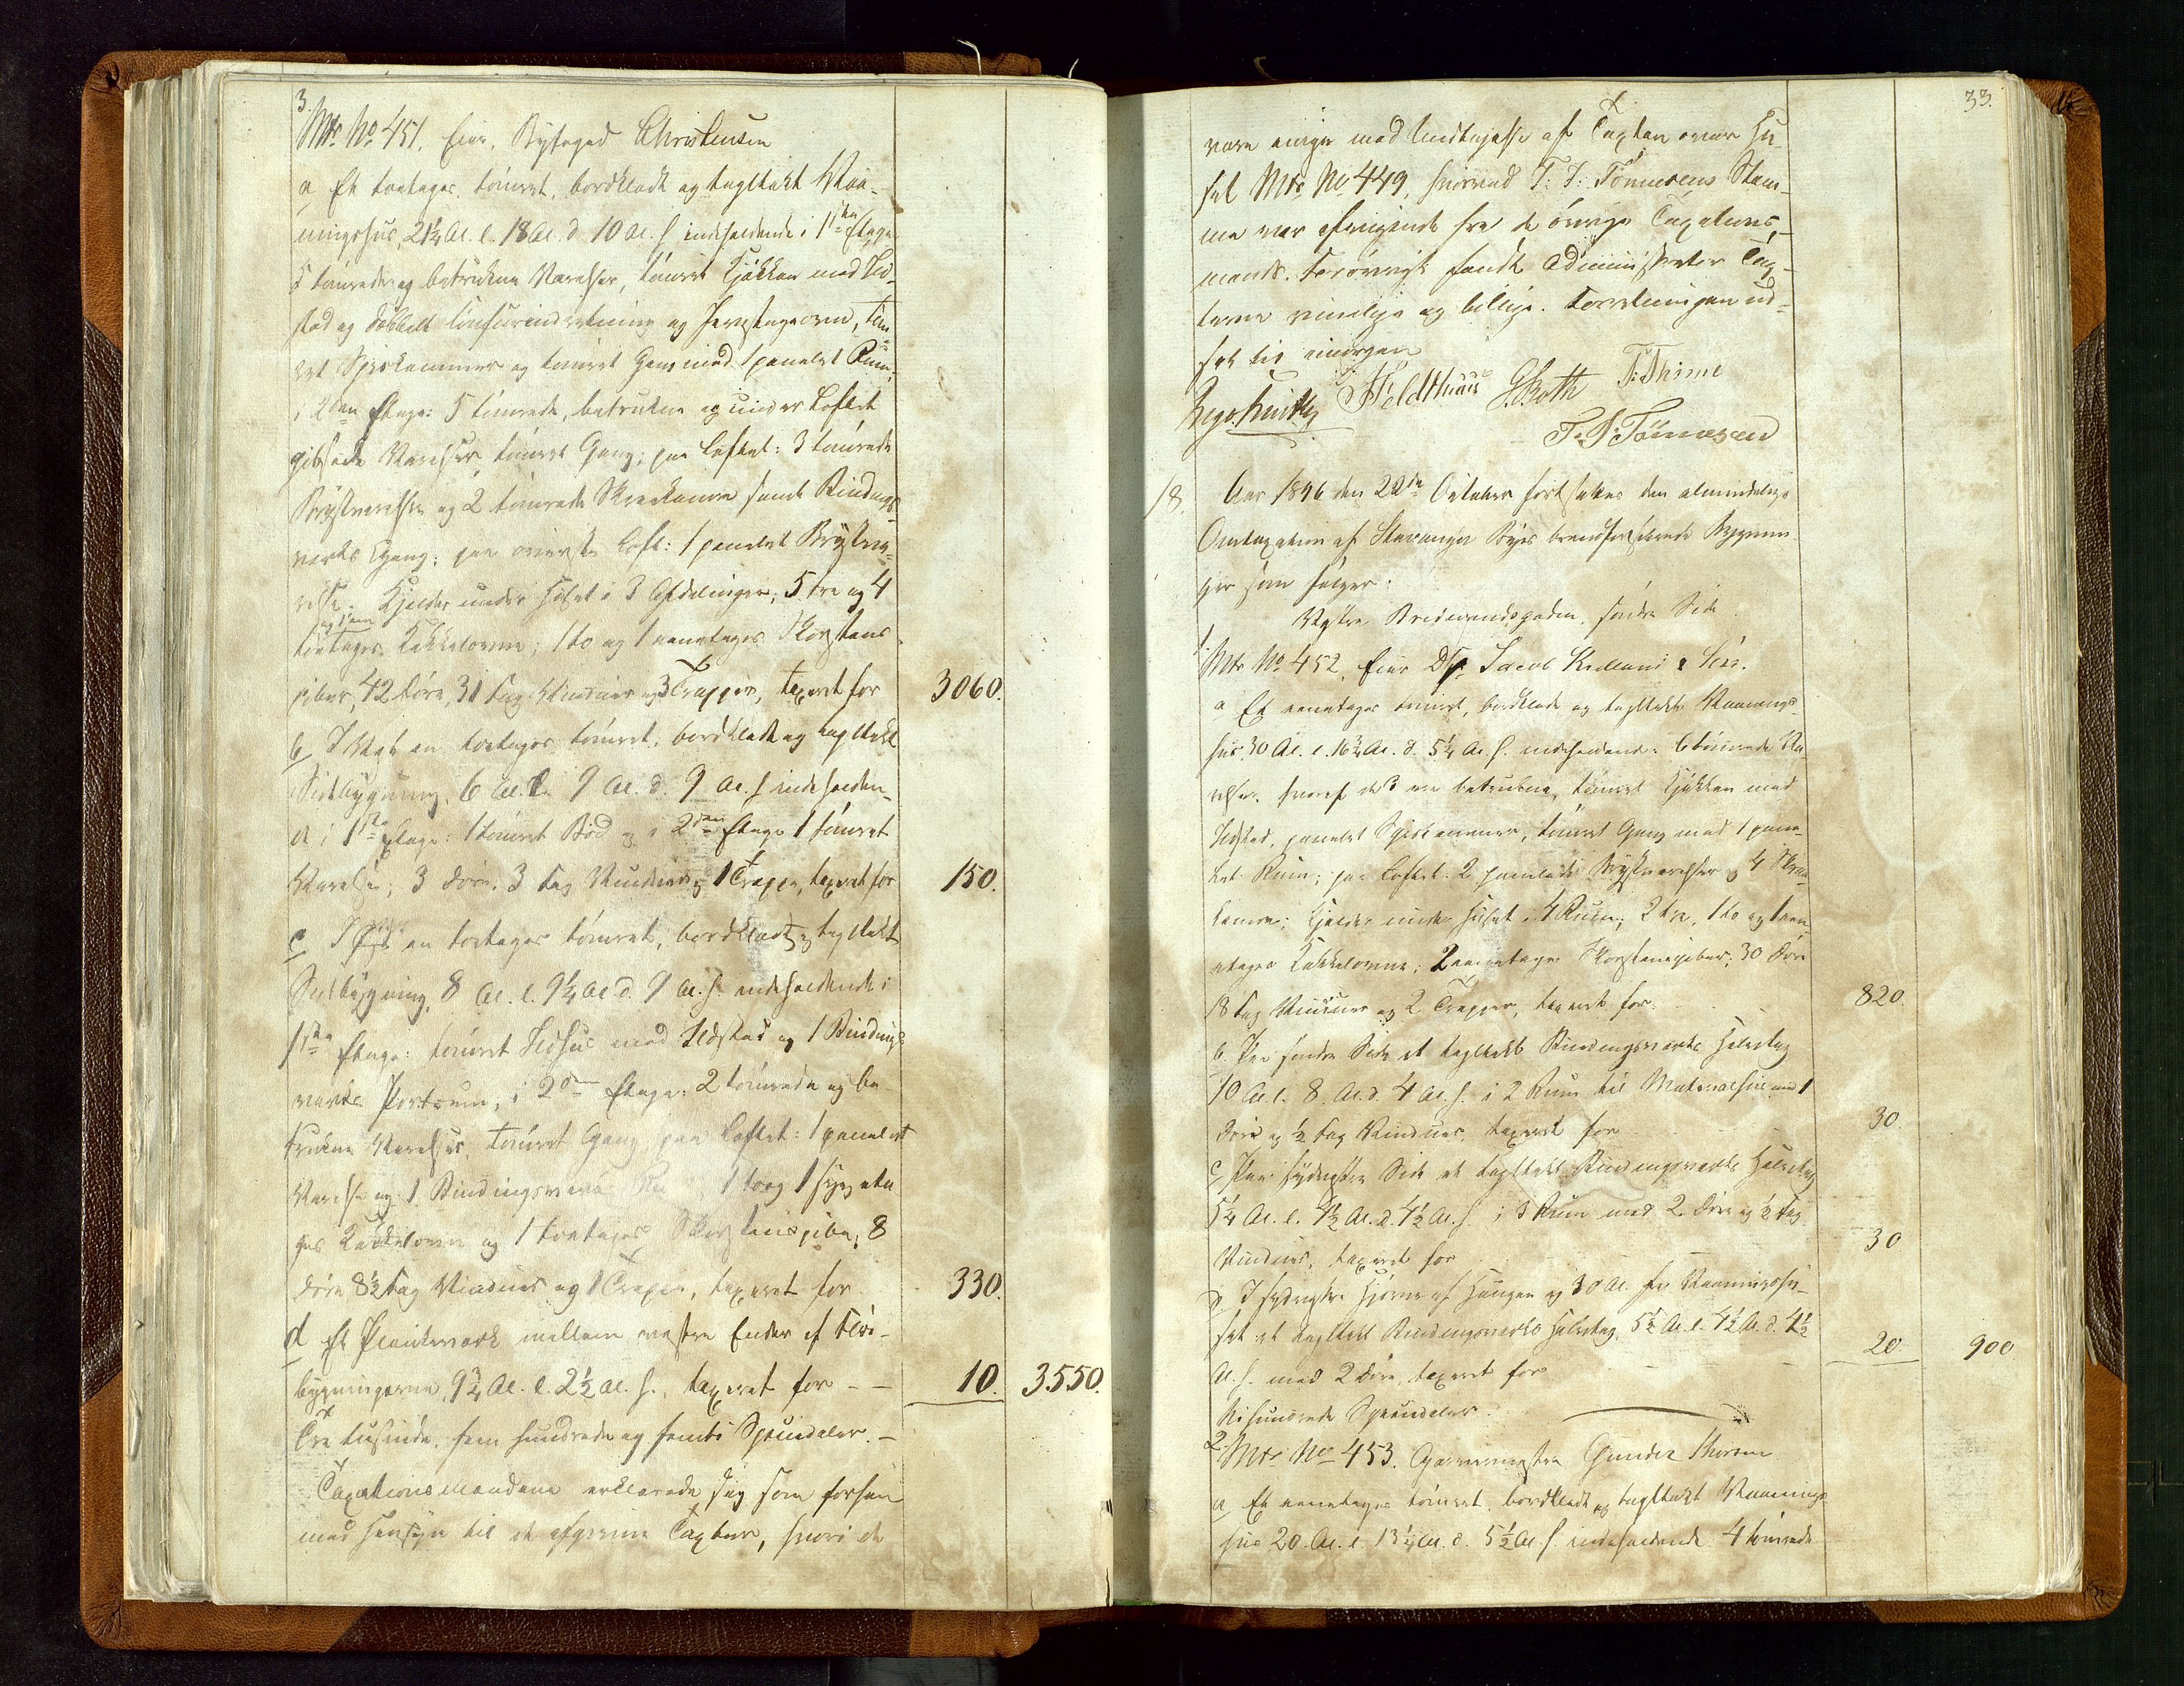 3.
Mtr. No 451. Eier, Byfoged Christensen
a Et toetages tømret, bordklædt og tagltækt Vaa-
ningshus, 21¼ Al. l. 18 Al. d. 10 Al. h. indeholdende i 1ste Etage
5 tømrede og betrukne Værelser, tømret Kjøkken med Ild-
sted og dobbelt og
ret Spiskammer og tømret Gang med 1 panelet Rum;
i 2den Etage: 5 tømrede, betrukne og under Loftet
gibsede Værelser, tømret Gang; paa Loftet: 3 tømrede
Qvistværelser og 2 tømrede Skraakamre samt Bindings-
værks Gang; paa øverste Loft: 1 panelet Qvistvæ-
relse. Kjelder under Huset i 3 Afdelinger; 5 tre og 4
toetages Kakkelovne; 1 to og 1 eenetages Skorstens-
piber, 42 Døre, 31 Fag Vinduer og 3 Trapper, taxeret for 3060.
b I Vest en toetages tømret, bordklædt og tagltækt
Sidebygning, 6 Al. l. 9 Al. d. 9 Al. h. indeholden-
de i 1ste Etage: 1 tømret Bod og i 2den Etage 1 tømret
Værelse; 3 Døre, 3 Fag Vinduer og 1 Trappe, taxeret for 150.
c I en toetages tømret, bordklædt og tagltækt
Sidebygning, 8 Al. l. 9¼ Al. d. 9 Al. h. indeholdende i
1ste Etage: tømret Ildhus med Ildsted og 1 Bindings-
værks Portrum, i 2den Etage: 2 tømrede og be-
trukne Værelser, tømret Gang, paa Loftet: 1 panelet
Værelse og 1 Bindingsværks 1 to og 1 eta-
ges Kakkelovn og 1 toetages Skorstenspibe; 8
Døre 8½ Fag Vinduer og 1 Trappe, taxeret for 330.
d Et Plankeværk mellem vestre Ender af Side-
bygningerne, 9¾ Al. l. 2½ Al. h., taxeret for - - 10. 3550.
Tre tusinde, fem hundrede og femti Speciedaler. -
Taxationsmændene erklærede sig som forhen
med Hensyn til de afgivne Taxter, hvori de
33.
vare enige med Undtagelse af Taxten over Hu-
set Mtr. No 449, hvorved T. J. Tönnesens Stem-
me var afvigende fra de øvrige Taxations-
mænds. Forøvrigt fandt Administrator Tax-
terne rimelige og billige. Forretningen ud-
sat til imorgen
Feldthuus G. Roth T. Thime
T. J. Tönnesen
18. Aar 1846 den 22de October fortsattes den almindelige
Omtaxation af Stavanger Byes brandforsikrede Bygnin-
ger som følger:
Vestre Bredevandsgaden, søndre Side
1. Mtr. No 452, Eier Jacob Kielland
a Et eenetages tømret, bordklædt og tagltækt Vaanings-
hus 30 Al. l. 16¾ Al. d. 5¼ Al. h. indeholdende: 6 tømrede Væ-
relser, hvoraf de 3 ere betrukne, tømret Kjøkken med
Ildsted, panelet Spiskammer, tømret Gang med 1 pane-
let Rum; paa Loftet: 2 panelede Qvistværelser og 4 Skraa-
kamre; Kjelder under Huset i 4 Rum; 2 tre, 1 to og 1 een-
etages Kakkelovne; 2 eenetages Skorstenspiber; 30 Døre
18 Fag Vinduer og 2 Trapper, taxeret for 820.
b. Paa søndre Side et tagltækt Bindingsværks Halvtag
10 Al. l. 8 Al. d. 4 Al. h. i 2 Rum til Materialhus med 1
Dør og ½ Fag Vindues, taxeret for 30.
c Paa sydvestre Side et tagltækt Bindingsværks Halvtag
5¼ Al. l. 4½ Al. d. 4½ Al. h. i 3 Rum med 2 Døre og ½ Fag
Vindues, taxeret for 30
d I sydvestre Hjørne af Haugen og 30 Al. fra Vaaningshu-
set et tagltækt Bindingsværks Halvtag, 5½ Al. l. 4½ Al. d. 4½
Al. h. med 2 Døre, taxeret for 20. 900
Nihundrede Speciedaler.
2. Mtr. No 453. Garvermester Gunder Thorsen
a Et eenetages tømret, bordklædt og tagltækt Vaanings-
hus 20 Al. l 13¼ Al. d. 5½ Al. h. indeholdende 4 tømrede